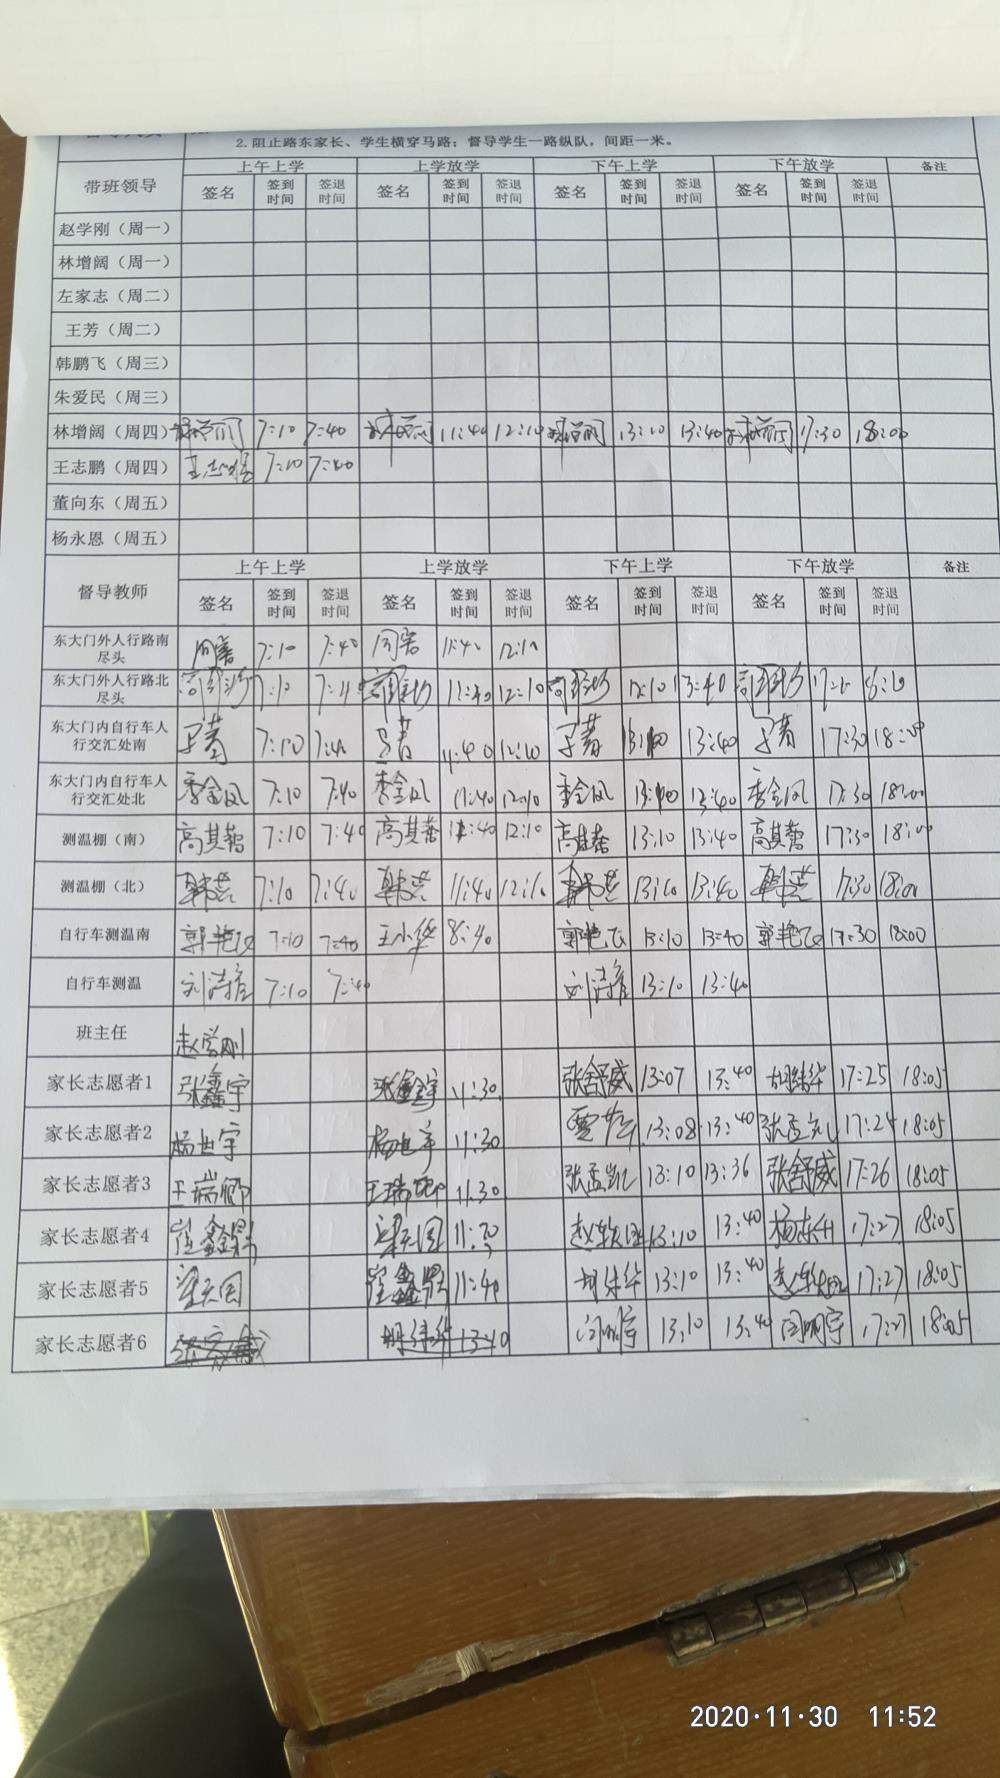 2. 阻止路东家长、学生横穿马路；督导学生一路纵队，间距一米。
带班领导 上午上学 上学放学 下午上学 下午放学 备注
签名 签到时间 签退时间 签名 签到时间 签退时间 签名 签到时间 签退时间 签名 签到时间 签退时间
赵学刚（周一）
林增阔（周一）
左家志（周二）
王芳（周二）
韩鹏飞（周三）
朱爱民（周三）
林增阔（周四） 林增阔 7:10 7:40 林增阔 11:40 12:10 林增阔 13:10 13:40 林增阔 17:30 18:00
王志鹏（周四） 王志鹏 7:10 7:40
董向东（周五）
杨永恩（周五）
督导教师 上午上学 上学放学 下午上学 下午放学 备注
签名 签到时间 签退时间 签名 签到时间 签退时间 签名 签到时间 签退时间 签名 签到时间 签退时间
东大门外人行路南尽头 7:10 7:40 11:40 12:10
东大门外人行路北尽头 7:10 11:40 12:10 13:10 13:40
东大门内自行车人行交汇处南 7:10 7:40 11:40 12:10 13:40 17:30 18:00
东大门内自行车人行交汇处北 季金凤 7:10 7:40 季金凤 11:40 12:10 季金凤 13:40 季金凤 17:30 18:00
测温棚（南） 高其蕾 7:10 7:40 高其蕾 11:40 12:10 高其蕾 13:10 13:40 高其蕾 17:30 18:00
测温棚（北） 7:10 7:40 11:40 12:10 13:10 13:40 17:30 18:00
自行车测温南 郭艳飞 7:10 7:40 王小华 8:40 郭艳飞 13:10 13:40 郭艳飞 17:30 18:00
自行车测温 7:10 7:40 13:10 13:40
班主任 赵学刚
家长志愿者1 张鑫宇 张鑫宇 11:30 张舒威 13:07 13:40 胡纬华 17:25 18:05
家长志愿者2 杨世宇 杨世宇 11:30 13:08 13:40 17:24 18:05
家长志愿者3 王瑞卿 王瑞卿 11:30 张孟凯 13:10 13:36 张舒威 17:26 18:05
家长志愿者4 崔鑫鹏 梁天国 11:30 13:10 13:40 杨东升 17:27 18:05
家长志愿者5 梁天国 崔鑫鹏 11:40 13:10 13:40 17:27 18:05
家长志愿者6 13:40 闫明宇 13:10 13:40 闫明宇 17:27 18:05
2020·11·30 11:52